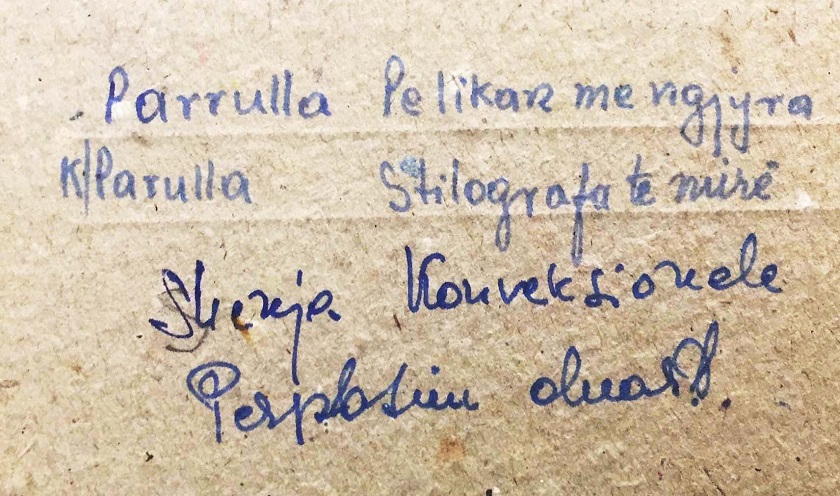 Parrulla Pelikan me ngjyra
K/Parulla Stilografa të mirë
Shenja Konveksionale
Perplasim duarsh.